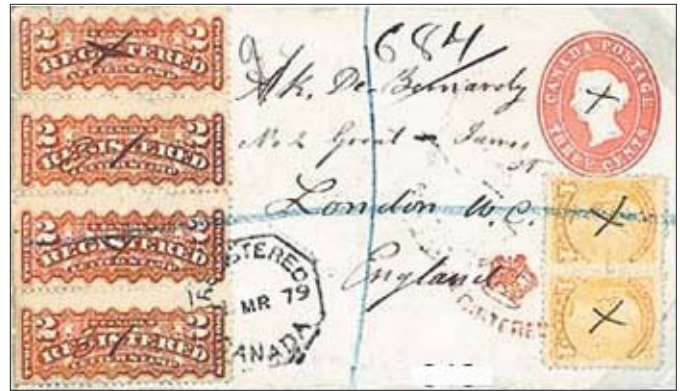 2
REGISTERED
2
2
REGISTERED
2
2
REGISTERED
2
2
REGISTERED
2
684
Ak. De Bernardy
No 2 Great James
St
London W.C.
England
CANADA POSTAGE
THREE CENTS
REGISTERED
MR 79
CANADA